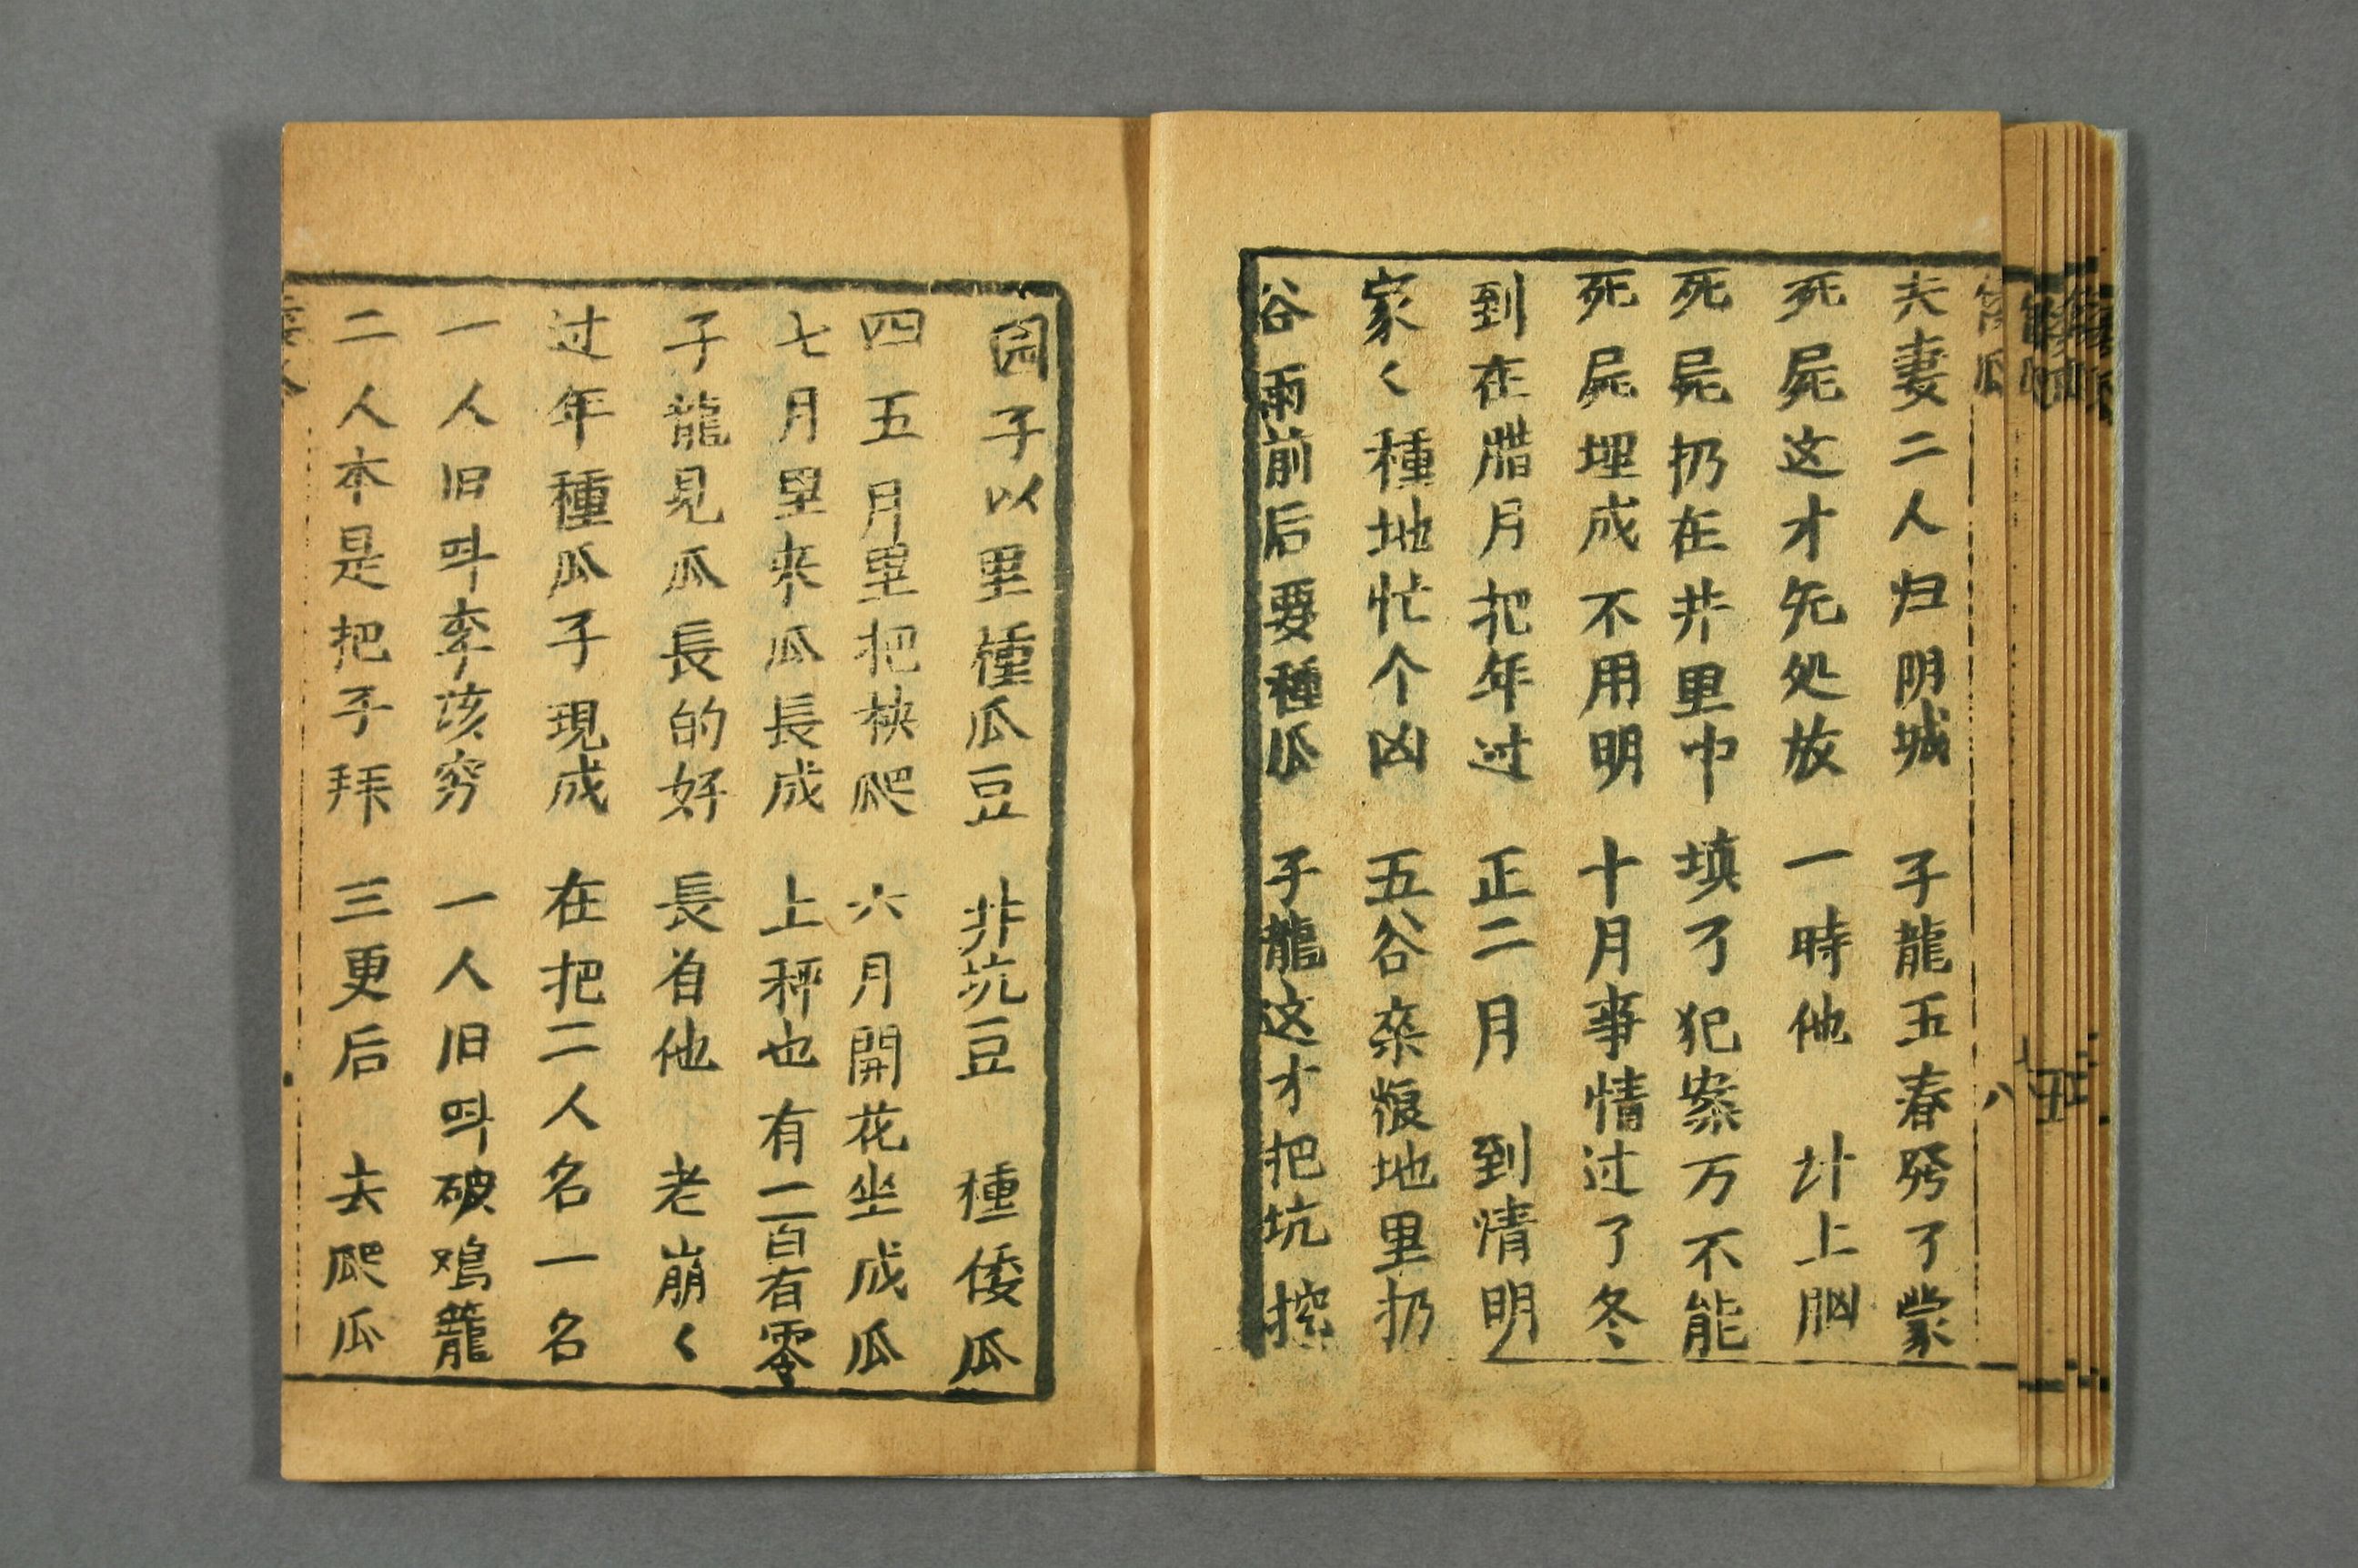 夫妻二人归阴城 子龍五春發了蒙
死屍这才先処放 一時他 计上胸
死屍扔在井里中 填了犯案万不能
死屍埋成不用明 十月事情过了冬
到在腊月把年过 正二月 到清明
家〱種地忙个凶 五谷杂粮地里扔
谷雨前后要種瓜 子龍这才把坑挖
园子以里種瓜豆 井坑豆 種倭瓜
四五月里把秧爬 六月開花坐成瓜
七月里来瓜長成 上秤也有二百有零
子龍見瓜長的好 長自他 老崩〱
过年種瓜子現成 在把二人名一名
一人旧呌李該穷 一人旧呌破鸡籠
二人本是把子拜 三更后 去爬瓜
八